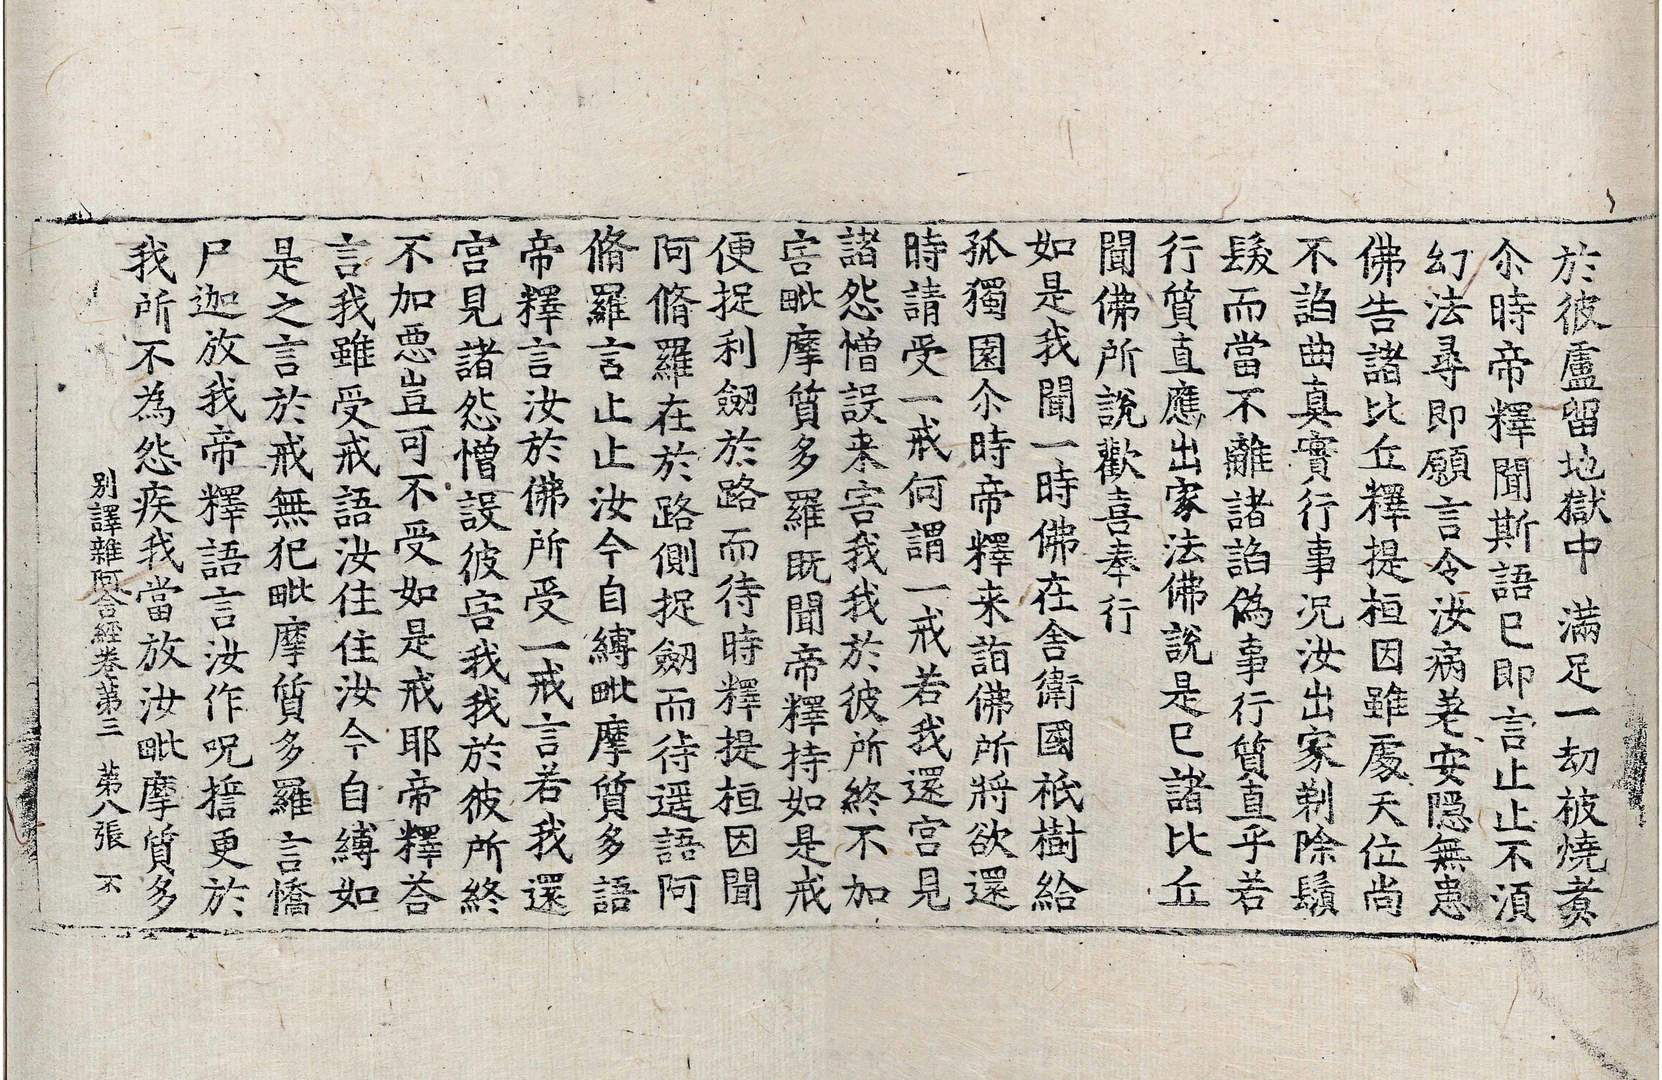 於彼盧留地獄中滿足一劫被燒煮
尒時帝釋聞斯語已即言止止不須
幻法尋即願言令汝病差安隱無患
佛告諸比丘釋提桓因雖處天位尚
不諂曲真實行事况汝出家剃除鬚
髮而當不離諸諂偽事行質直乎若
行質直應出家法佛說是已諸比丘
聞佛所說歡喜奉行
如是我聞一時佛在舍衛國祇樹給
孤獨園尒時帝釋来詣佛所將欲還
時請受一戒何謂一戒若我還宮見
諸怨憎設来害我我於彼所終不加
害毗摩質多羅既聞帝釋持如是戒
便捉利劒於路而待時釋提桓因聞
阿脩羅在於路側捉劒而待遥語阿
脩羅言止止汝今自縛毗摩質多語
帝釋言汝於佛所受一戒言若我還
宮見諸怨憎設彼害我我於彼所終
不加惡豈可不受如是戒耶帝釋荅
言我雖受戒語汝住住汝今自縛如
是之言於戒無犯毗摩質多羅言憍
尸迦放我帝釋語言汝作呪誓更於
我所不為怨疾我當放汝毗摩質多
別譯雜阿含經卷第三 第八張 不